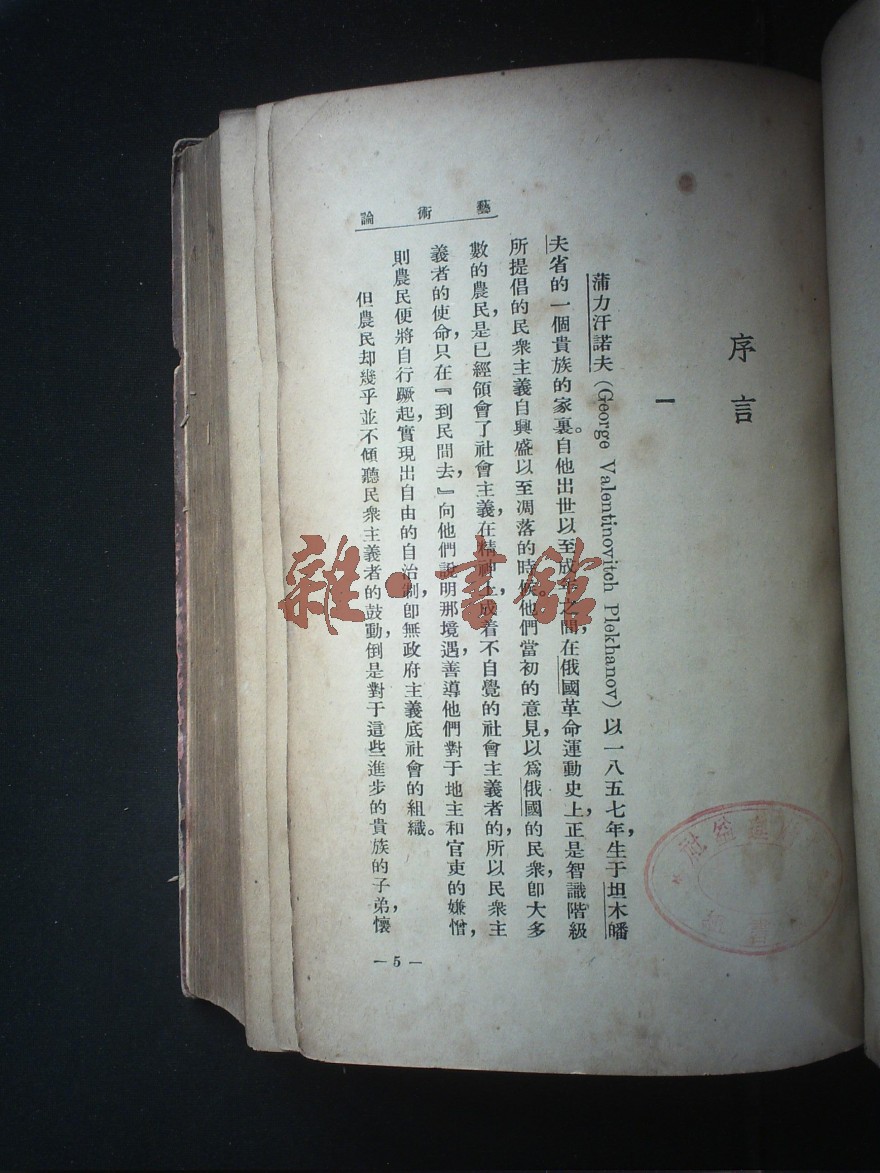 序言
一
蒲力汗諾夫(George Valentinovitch Plekhanov)以一八五七年,生于坦木皤
夫省的一個貴族的家裏。自他出世以至成年之間,在俄國革命運動史上,正是智識階級
所提倡的民衆主義自興盛以至凋落的時候。他們當初的意見,以爲俄國的民衆,卽大多
數的農民,是已經領會了社會主義,在精神上,成着不自覺的社會主義者的,所以民衆主
義者的使命,只在『到民間去,』向他們說明那境遇,善導他們對于地主和官吏的嫌憎,
則農民便將自行蹶起,實現出自由的自治制,卽無政府主義底社會的組織。
但農民却幾乎並不傾聽民衆主義者的鼓動,倒是對于這些進步的貴族的子弟,懷
藝術論
— 5 —
雜·書館